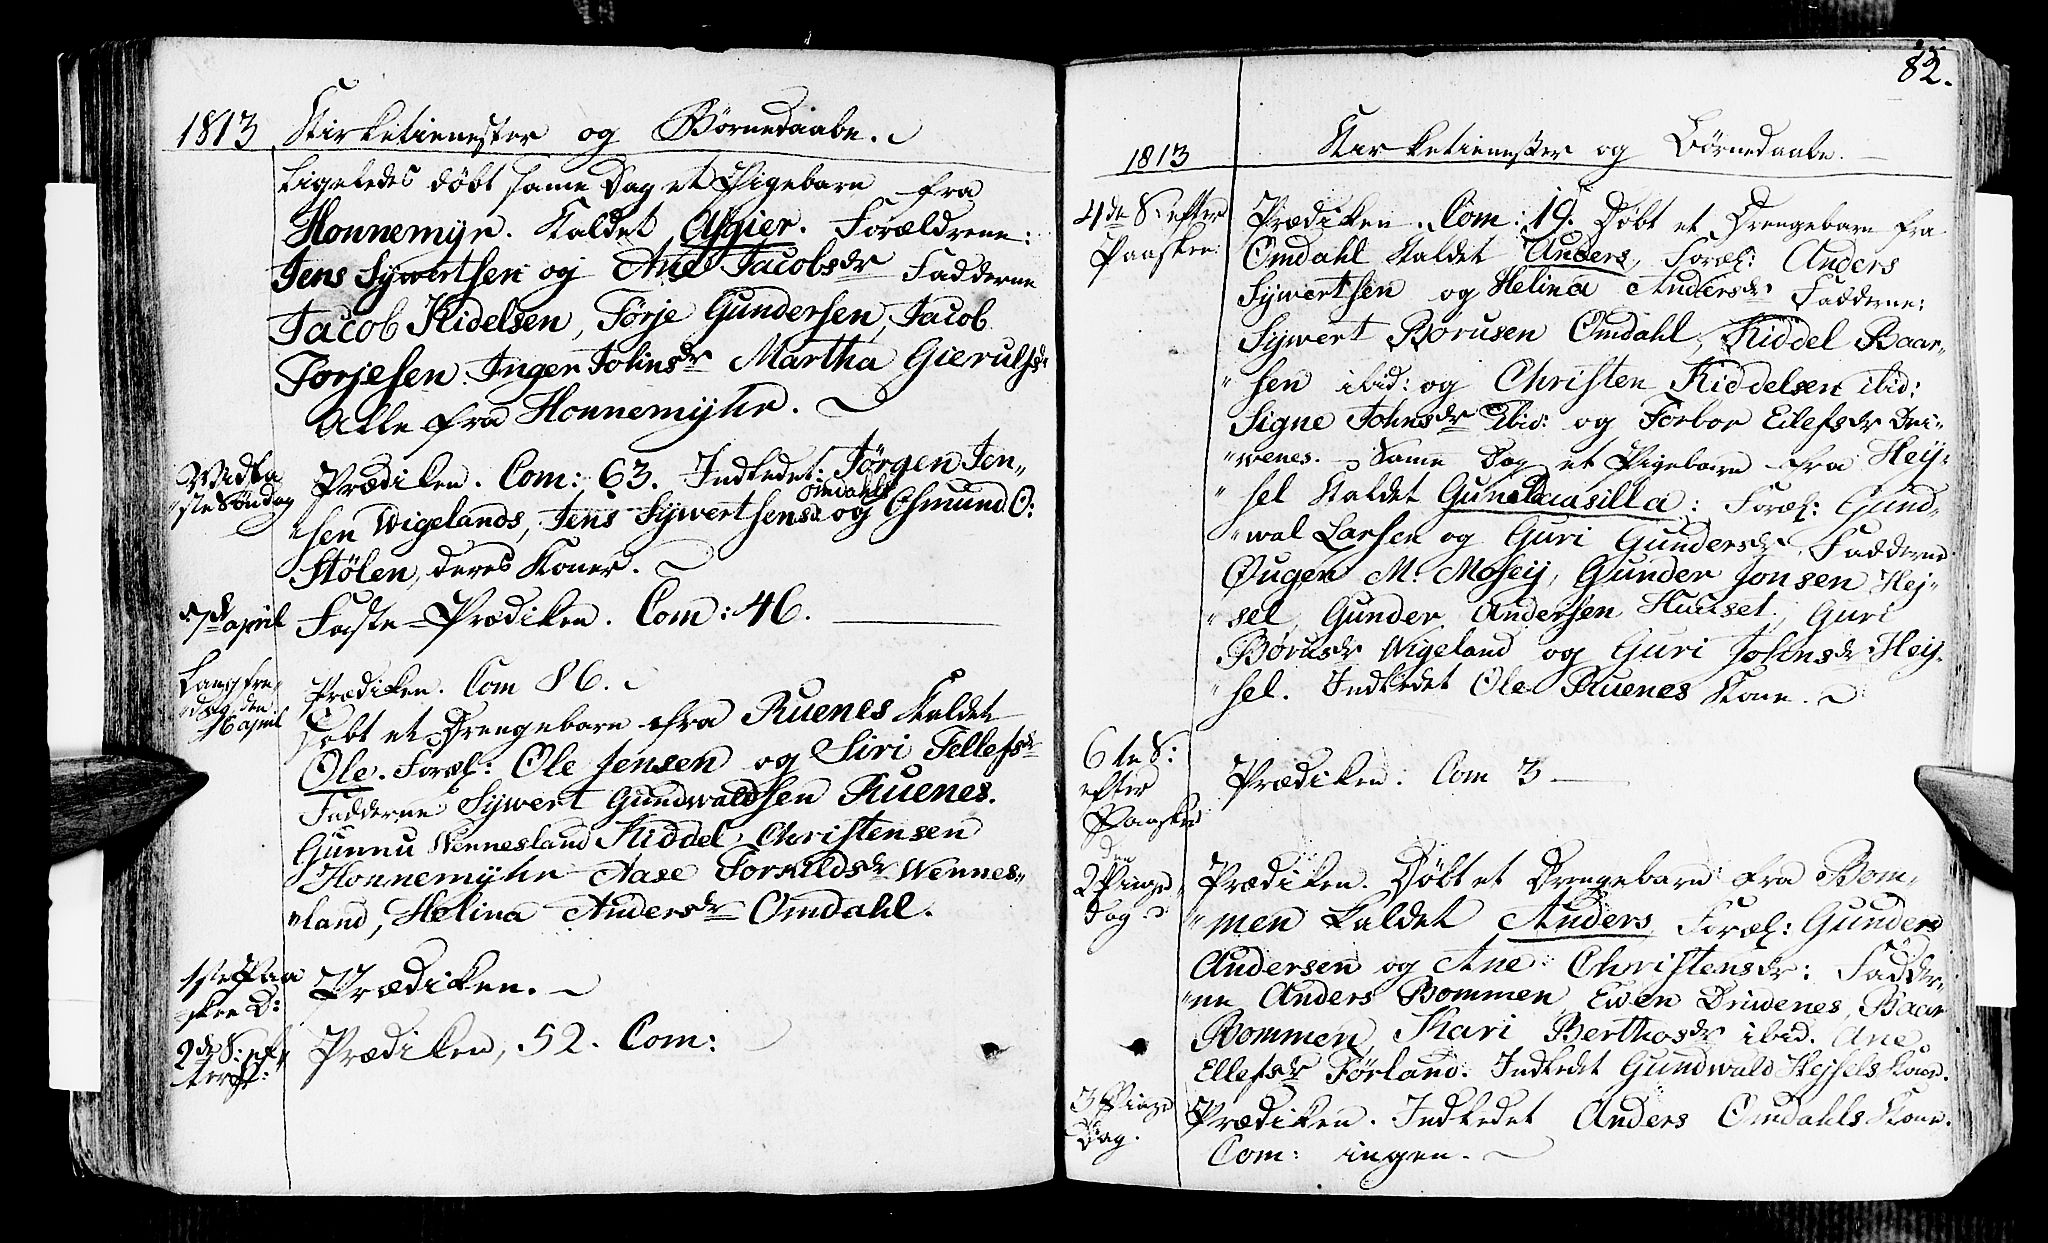 1813 Kirketienester og Børnedaabe.
Ligeledes døbt same Dag et Pigebarn fra
Honnemyr. Kaldet Assier. Forældrene:
Jens Sywertsen og Ane Jacobsdr Fadderne
Jacob Kidelsen, Torje Gundersen, Jacob
Torjesen. Inger Johnsdr Martha Gierulfsdr
Alle fra Honnemyhr.
Midfa
ste Søndag
Prædiken. Com: 63. Indledet: Jørgen Jen„
„sen Wigelands, Jens Sywertsens Omdahls og Osmund O:
Stølen, deres Koner.
april
Faste-Prædiken. Com: 46.
Langfre„
„dag den
16 april
Prædiken. Com 86.
Døbt et Drengebarn fra Ruenes Kaldet
Ole. Foræl: Ole Jensen og Siri Tellefsdr
Fadderne Sywert Gundwaldsen Ruenes.
Gunnu Wennesland Kiddel Christensen
Honnemyhr Aase Torkildsdr Wennes„
„land, Helina Andersdr Omdahl.
1ste Paa
skee D:
Prædiken.
2de S: ef„
ter P:
Prædiken, 52. Com:
82.
1813
Kirketienester og Børnedaabe.
4de S: efter
Paasken.
Prædiken. Com: 19. Døbt et Drengebarn fra
Omdahl Kaldet Anders, Foræl: Anders
Sywertsen og Helina Andersdr Fadderne:
Sywert Borusen Omdahl, Kiddel Baar„
„sen ibid: og Christen Kiddelsen ibid:
Signe Johnsdr Ibid: og Torbor Eilefsdr Dri„
„wenes. Same Dag et Pigebarn fra Hey„
„sel Kaldet Gunuldaasilla: Foræl: Gund„
„wal Larsen og Guri Gundersdr. Fadderne
Øugen M. Mosey, Gunder Jonsen Hej„
„sel, Gunder Andersen Huuset, Guri
Børusdr Wigeland og Guri Johnsdr Hey„
„sel. Indledet Ole Ruenes Kone.
6te S:
efter
Paasken
Prædiken. Com 3
den
2 Pinze„
dag
Prædiken. Døbt et Drengebarn fra Bom„
„men kaldet Anders Foræl: Gunder
Andersen og Ane Christensdr: Fadder„
„ne Anders Bommen Ewen Driwenes, Baar
Bommen, Kari Berthosdr ibid. Ane
Ellefsdr Førland. Indledet Gundwald Hejsels Kone.
3 Pinze
Dag.
Prædiken. Indledet Anders Omdahls Kone.
Com: ingen.